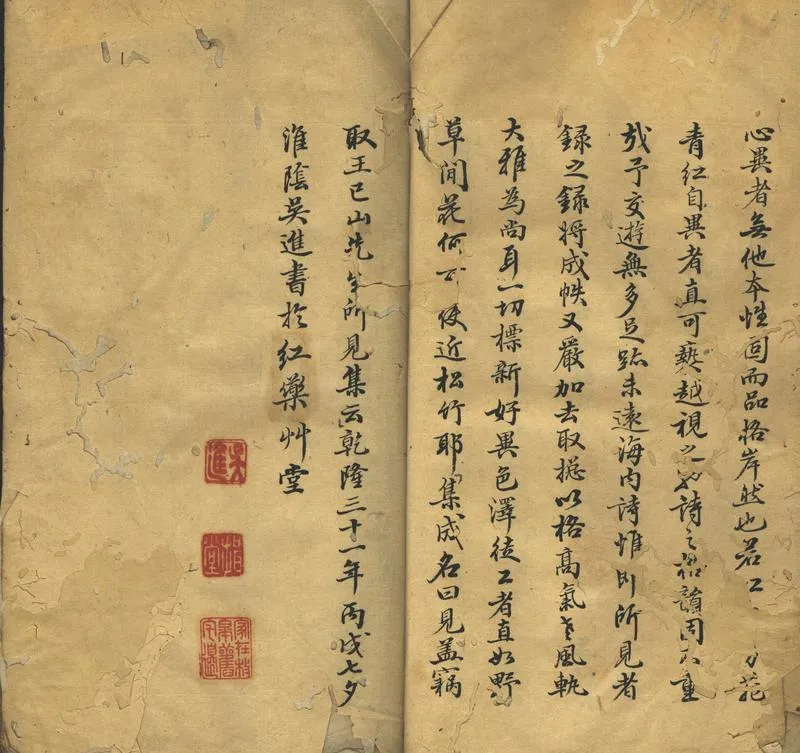 心異者無他本性固而品格岸然也若工花
青紅自異者直可奏越視之詩之品韻固不重
哉予交遊無多足跡未遠海内詩惟即所見者
録之録將成帙又嚴加去取摠以格高氣老風軌
大雅為尚耳一切標新好異色澤徒工者直如野
草閒花何可使近松竹耶集成名曰見盖竊
取王巳山先生所見集云乾隆三十一年丙戌七夕
淮陰吳進書於紅藥艸堂
吳進